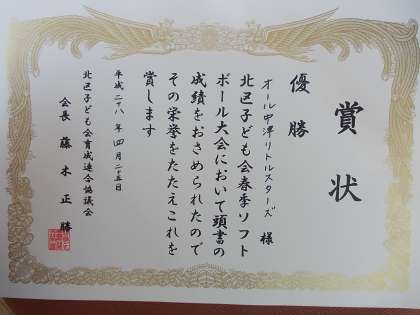 賞状
優勝
オール中津リトルスターズ 様
北区子ども会春季ソフト
ボール大会において頭書の
成績をおさめられたので
その栄挙をたたえこれを
賞します
平成二八年四月二五日
北区子ども会育成連合協議会
会長 藤木正勝